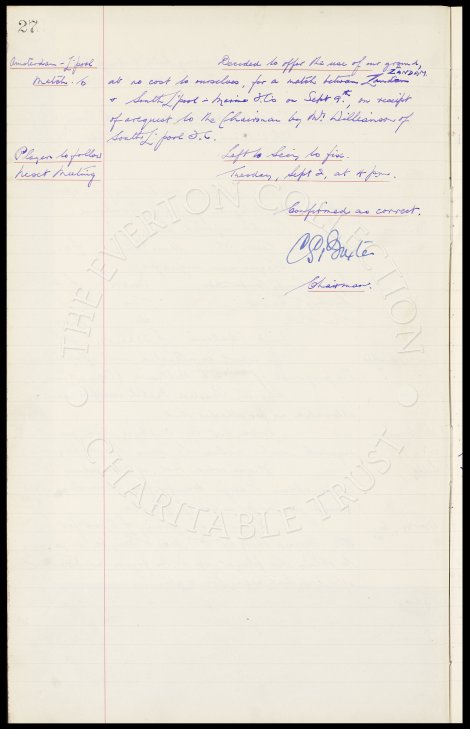 27
Amsterdam - L'pool
Match
Decided to offer the use of our ground,
ZANDAM
at no cost to ourselves, for a match between Zandam
& South L'pool - Marine F.Cs on Sept 9th, on receipt
of a request to the Chairman by Mr Williamson of
South L'pool F.C.
Players to follow
Left to Secy to fix.
Next Meeting
Tuesday, Sept 2, at 4 p.m.
Confirmed as correct.
C S Baxter
Chairman.
THE EVERTON COLLECTION
CHARITABLE TRUST